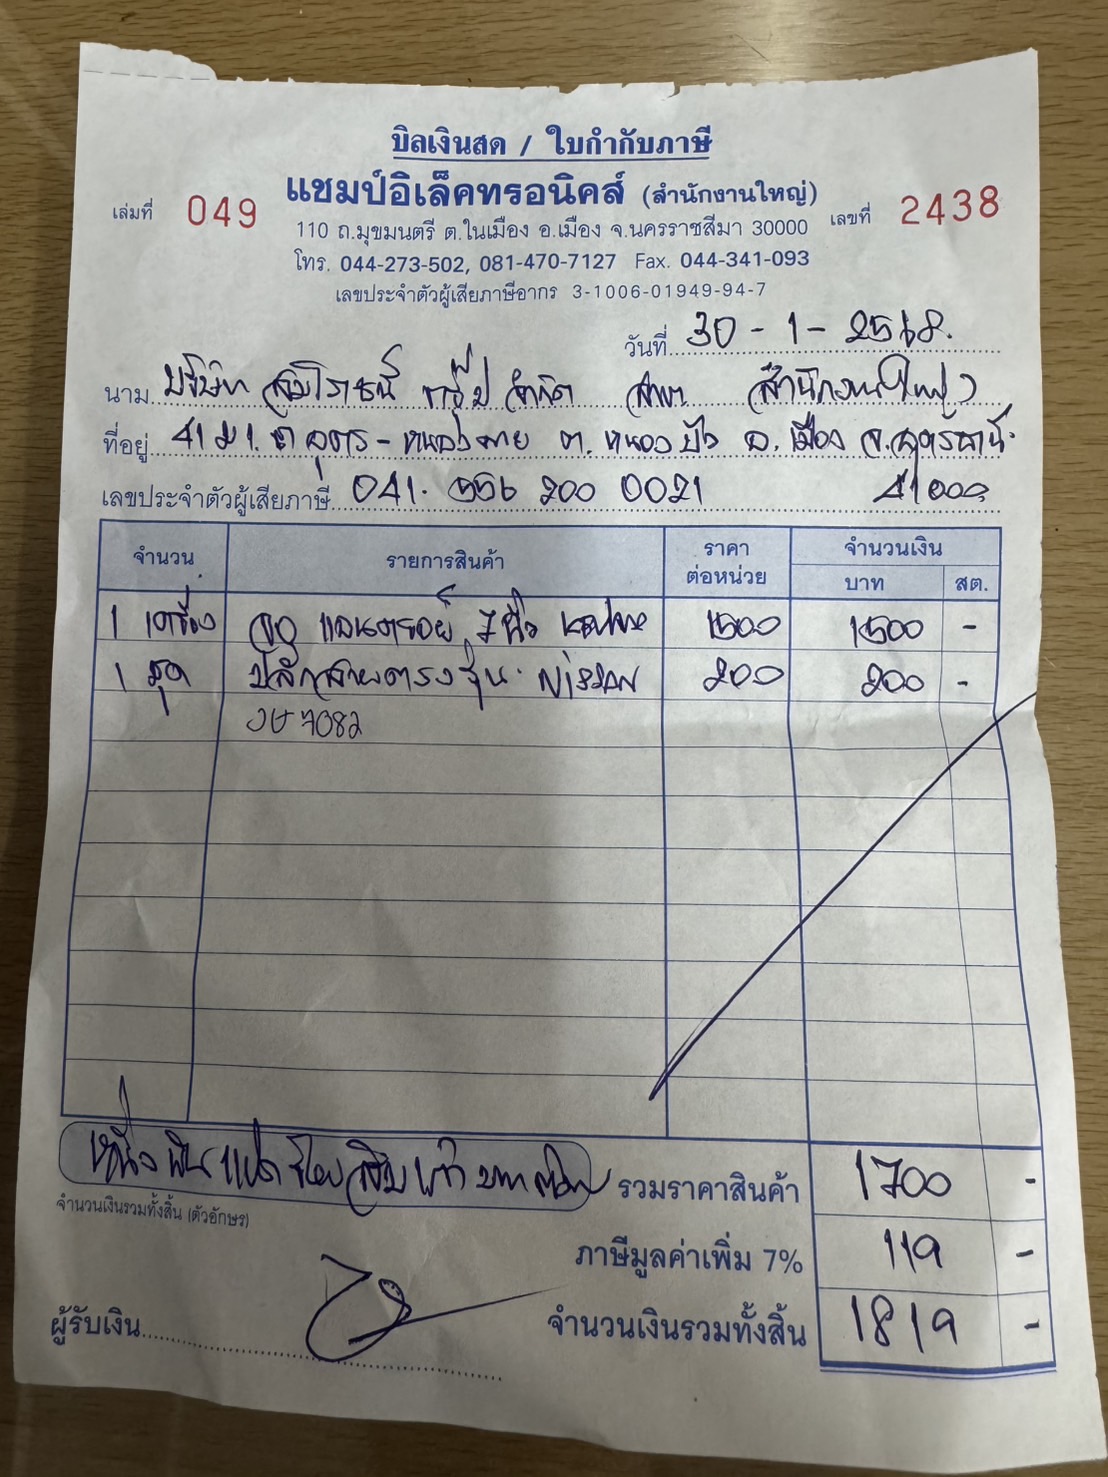 บิลเงินสด / ใบกำกับภาษี
แชมป์อิเล็คทรอนิคส์ (สำนักงานใหญ่)
เล่มที่ 049 เลขที่ 2438
110 ถ.มุขมนตรี ต.ในเมือง อ.เมือง จ.นครราชสีมา 30000
โทร. 044-273-502, 081-470-7127 Fax. 044-341-093
เลขประจำตัวผู้เสียภาษีอากร 3-1006-01949-94-7
วันที่ 30-1-2568.
นาม บริษัท กรุ๊ป จำกัด สาขา สำนักงานใหญ่
ที่อยู่ 41 ม 1. ถ อุดร- ต. หนองบัว อ. เมือง จ.อุดรธานี.
เลขประจำตัวผู้เสียภาษี 041. 556 200 0021 41000
จำนวน รายการสินค้า ราคาต่อหน่วย จำนวนเงิน บาท สต.
1 เครื่อง จอ แอนดรอย์ 7 นิ้ว 1500 1500 -
1 ชุด ปลั๊กสายตรงรุ่น. NISSAN 200 200 -
7082
หนึ่งพันแปดร้อยสิบเก้าบาทถ้วน รวมราคาสินค้า 1700 -
จำนวนเงินรวมทั้งสิ้น (ตัวอักษร)
ภาษีมูลค่าเพิ่ม 7% 119 -
ผู้รับเงิน จำนวนเงินรวมทั้งสิ้น 1819 -